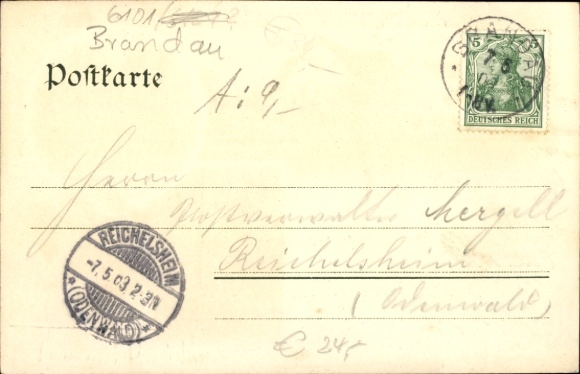 6101
Brandau
Postkarte
A: 9,-
5
7 5
DEUTSCHES REICH
Herrn
Postverwalter Mergell
Reichelsheim
(Odenwald)
REICHELSHEIM
-7.5.03.2-3N
* (ODENWALD) *
€ 24,-